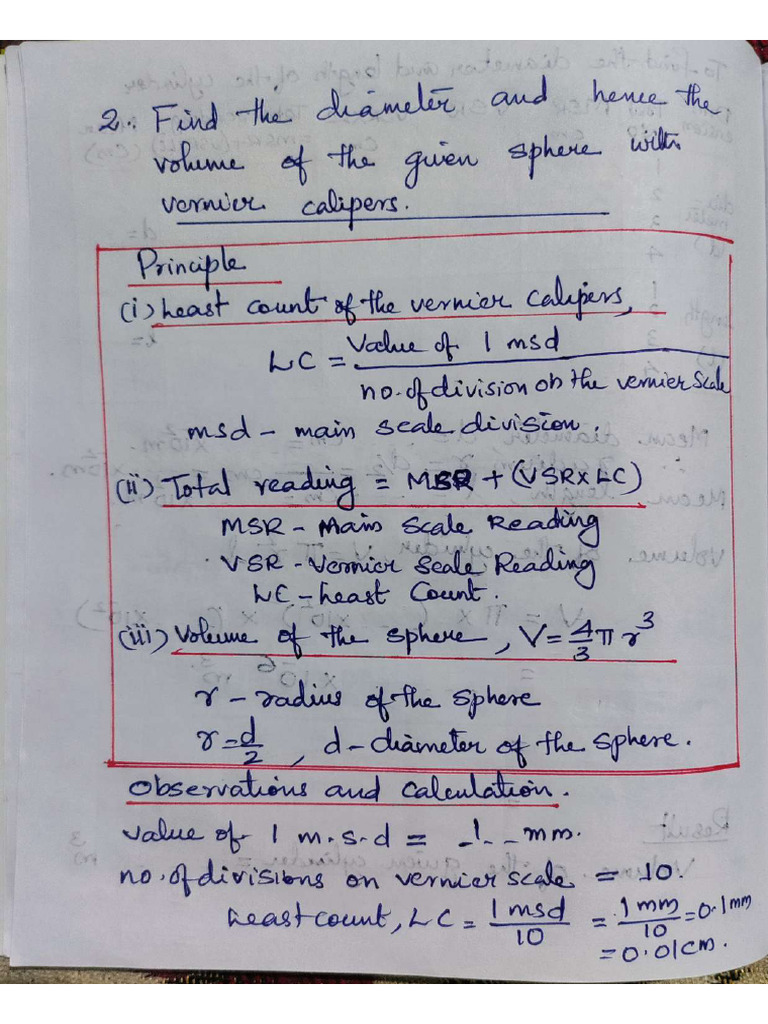 2. Find the diameter and hence the
volume of the given sphere with
vernier calipers.
Principle
(i) Least count of the vernier calipers,
LC = Value of 1 msd / no. of division on the vernier scale
msd - main scale division.
(ii) Total reading = MSR + (VSR x LC)
MSR - Main Scale Reading
VSR - Vernier Scale Reading
LC - Least Count.
(iii) Volume of the sphere, V = 4/3 π r³
r - radius of the sphere
r = d/2, d - diameter of the sphere.
Observations and calculation.
value of 1 m.s.d = 1 mm.
no. of divisions on vernier scale = 10.
Least count, LC = 1 msd / 10 = 1 mm / 10 = 0.1 mm
= 0.01 cm.